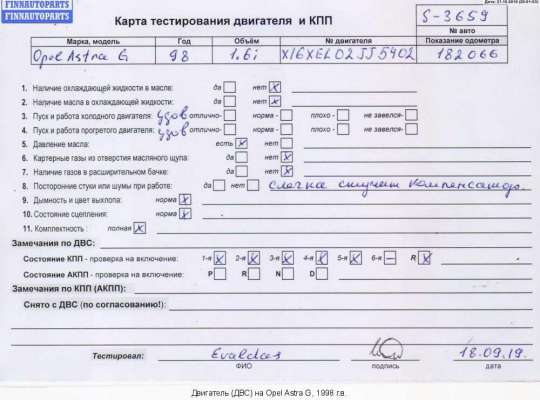 FINNAUTOPARTS
FINNAUTOPARTS
FINNAUTOPARTS
Карта тестирования двигателя и КПП
S-3659
№ авто
Марка, модель Год Объём № двигателя Показание одометра
Opel Astra G 98 1.6i X16XEL02JJ5402 182066
1. Наличие охлаждающей жидкости в масле: да нет X
2. Наличие масла в охлаждающей жидкости: да нет X
3. Пуск и работа холодного двигателя: удов отлично- норма - плохо - не завелся-
4. Пуск и работа прогретого двигателя: удов отлично- норма - плохо - не завелся-
5. Давление масла: есть X нет
6. Картерные газы из отверстия масляного щупа: да нет X
7. Наличие газов в расширительном бачке: да нет X
8. Посторонние стуки или шумы при работе: да нет слегка стучит компенсатор
9. Дымность и цвет выхлопа: норма X
10. Состояние сцепления: норма X
11. Комплектность : полная X
Замечания по ДВС:
Состояние КПП - проверка на включение: 1-я X 2-я X 3-я X 4-я X 5-я X 6-я — R X
Состояние АКПП - проверка на включение: P R N D
Замечания по КПП (АКПП):
Снято с ДВС (по согласованию!):
Тестировал: Evaldas 18.09.19.
ФИО подпись дата
Двигатель (ДВС) на Opel Astra G, 1998 г.в.